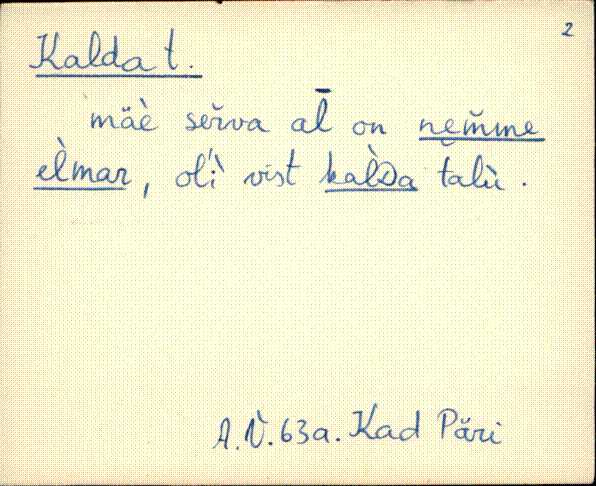 2
Kalda t.
mäè sĕrva al̄ on nem̆me
èlmar, oĺì vist kàlDa t̆alù.
A.V̀. 63a. Kad Pări